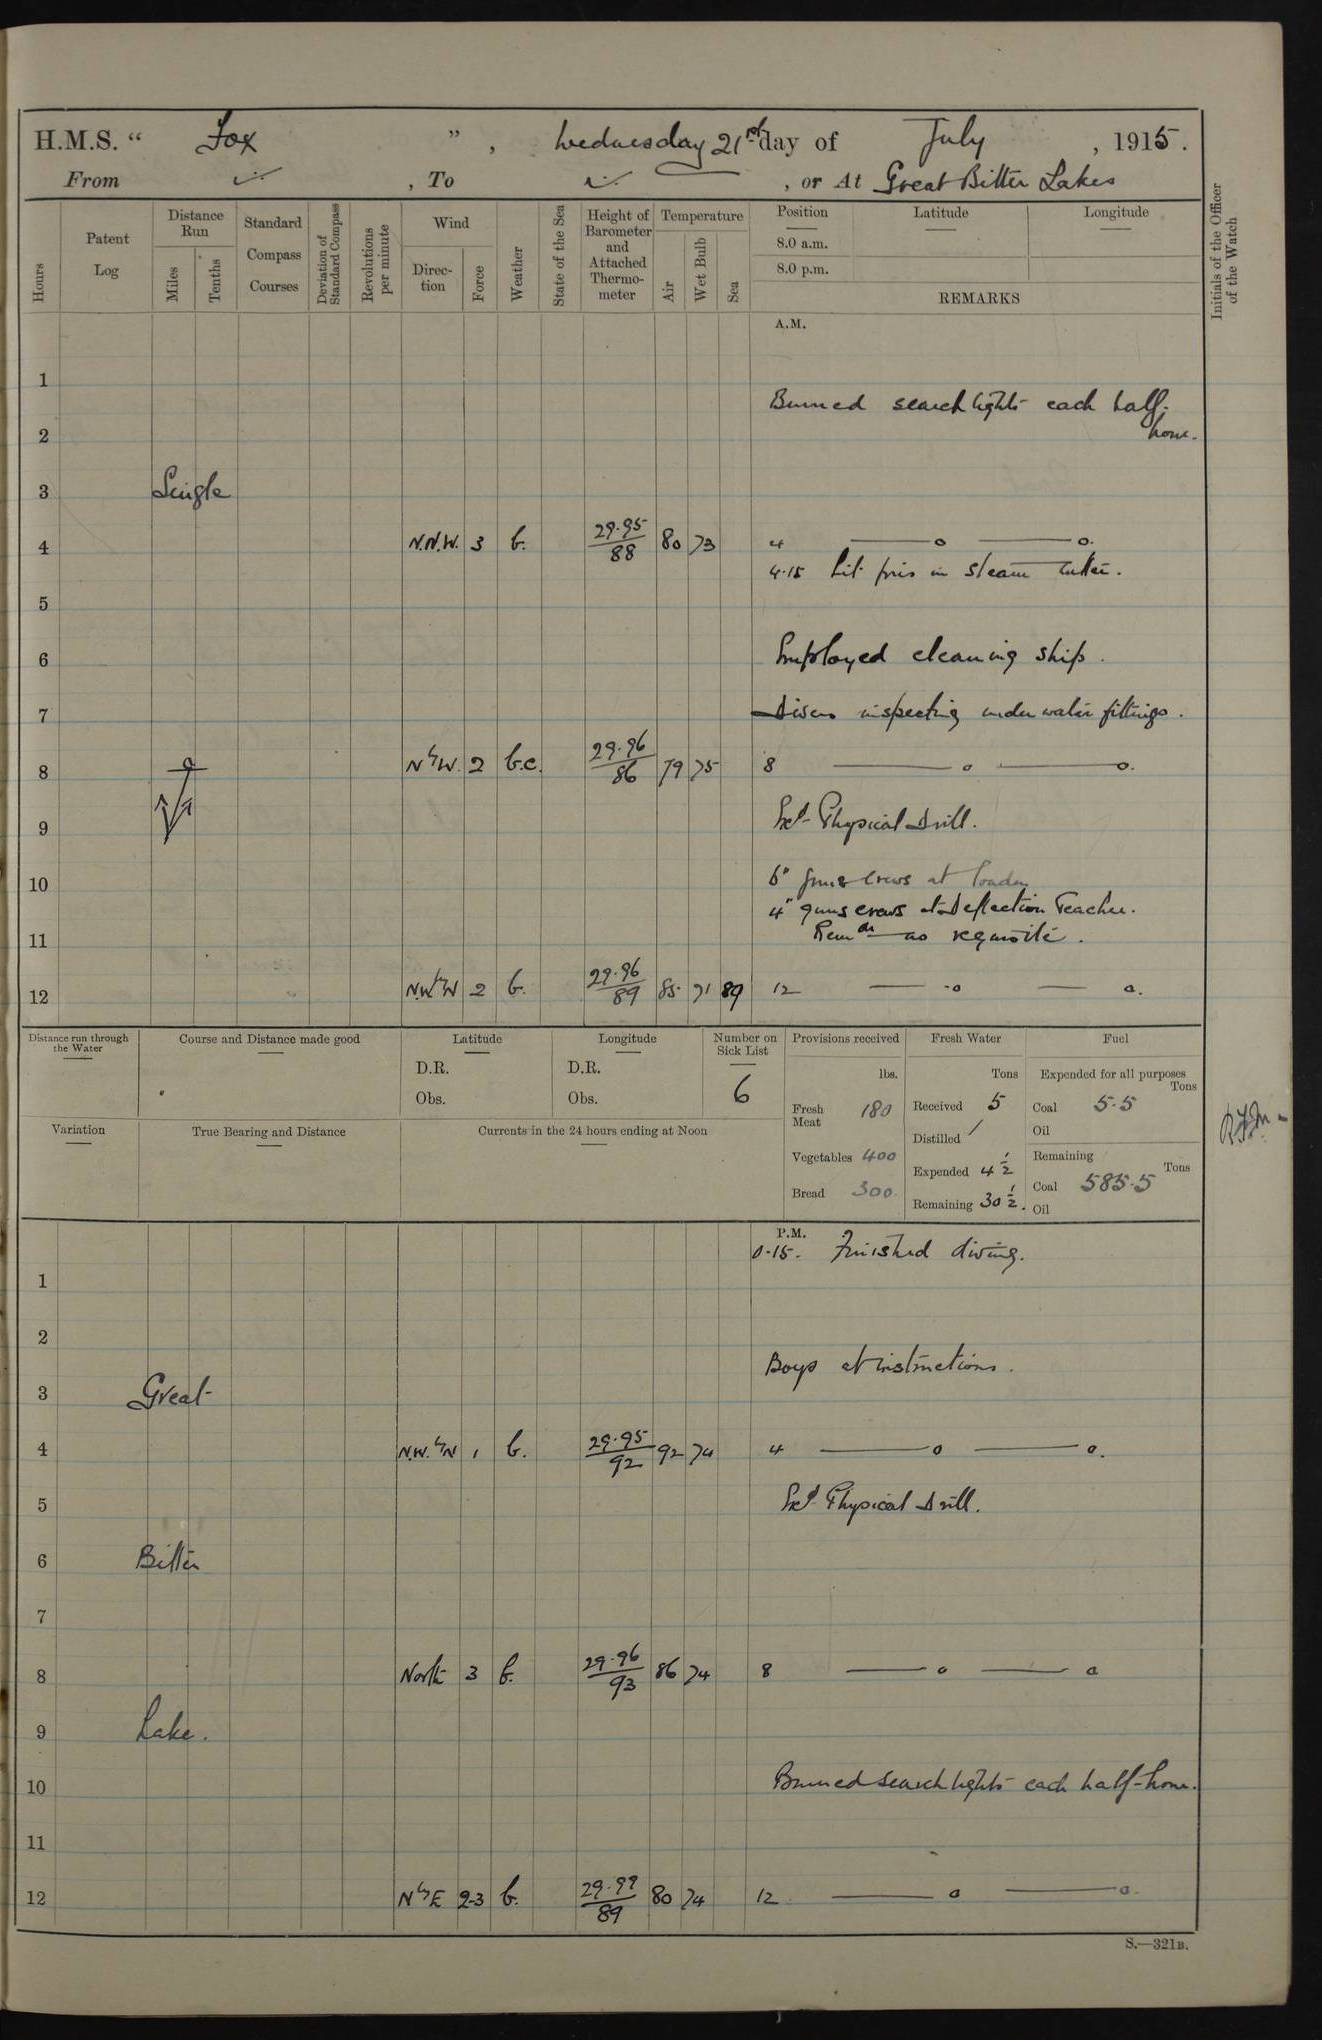 H.M.S. “ Fox ” , Wednesday 21st day of July , 1915 .
From , To , or At Great Bitter Lakes
Hours
Patent Log
Distance Run
Miles
Tenths
Standard Compass Courses
Deviation of Standard Compass
Revolutions per minute
Wind
Direc- tion
Force
Weather
State of the Sea
Height of Barometer and Attached Thermo- meter
Temperature
Air
Wet Bulb
Sea
Position
Latitude
Longitude
8.0 a.m.
8.0 p.m.
REMARKS
Initials of the Officer of the Watch
A.M.
1
Burned searchlights each half-
2 hour.
3 Single
4 N.N.W. 3 b. 29.95 88 80 73 4 —— o —— o.
4.15 Lit fires in steam cutter.
5
6 Employed cleaning ship.
7 Divers inspecting under water fittings.
8 NbyW. 2 b.c. 29.96 86 79 75 8 —— o —— o.
9 Exd Physical Drill.
10 6" guns crews at loader
4" guns crews at Deflection Teacher.
11 Remdr as requisite.
12 N.WbyW 2 b. 29.96 89 85 71 89 12 —— o —— o.
Distance run through the Water
Course and Distance made good
Latitude
D.R.
Obs.
Longitude
D.R.
Obs.
Number on Sick List
6
Provisions received
lbs.
Fresh Meat 180
Vegetables 400
Bread 300
Fresh Water
Tons
Received 5
Distilled /
Expended 4 1/2
Remaining 30 1/2.
Fuel
Expended for all purposes
Tons
Coal 5.5
Oil
Remaining
Tons
Coal 585.5
Oil
Variation
True Bearing and Distance
Currents in the 24 hours ending at Noon
P.M.
0.15. Finished diving.
1
2
Boys at instructions.
3 Great
4 N.W.byN 1 b. 29.95 92 92 74 4 —— o —— o.
5 Exd Physical Drill.
6 Bitter
7
8 North 3 b. 29.96 93 86 74 8 —— o —— o
9 Lake.
10 Burned searchlights each half-hour.
11
12 NbyE 2-3 b. 29.97 89 80 74 12 —— o —— o.
S.—321B.